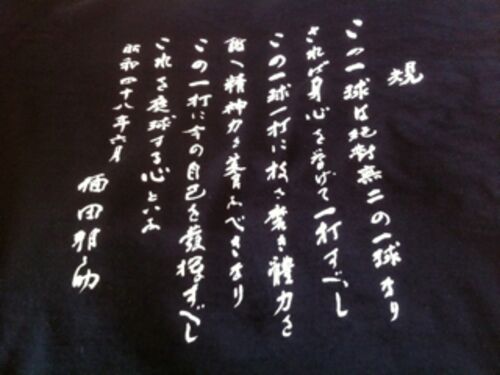 規
この一球は絶対無二の一球なり
されば身心を挙げて一打すべし
この一球一打に技を磨き體力を
鍛へ精神力を養ふべきなり
この一打に今の自己を發揮すべし
これを庭球する心といふ
昭和四十八年六月
福田雅之助